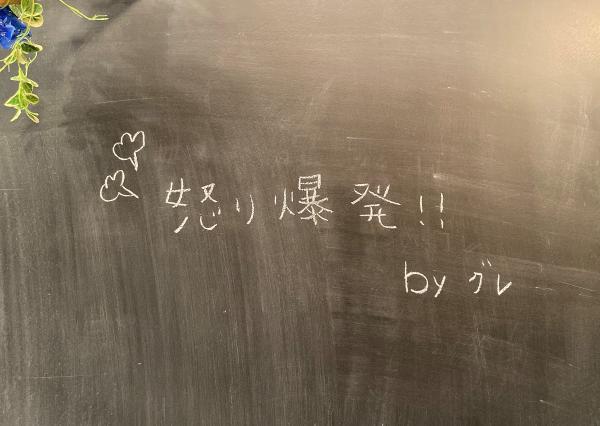 怒り爆発!!
by グレ